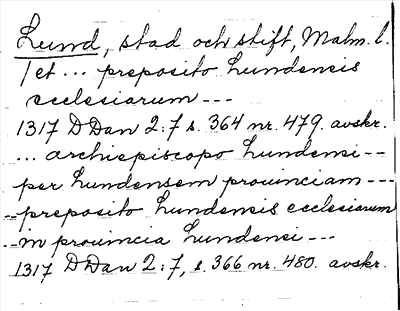 Lund, stad och stift, Malm. l.
/et ... preposito Lundensis
ecclesiarum ---
1317 DDan 2:7 s. 364 nr. 479. avskr.
... archiepiscopo Lundensi --
per Lundensem prouinciam ---
--preposito Lundensis ecclesiarum
--in prouincia Lundensi ---
1317 DDan 2:7, s. 366 nr. 480. avskr.